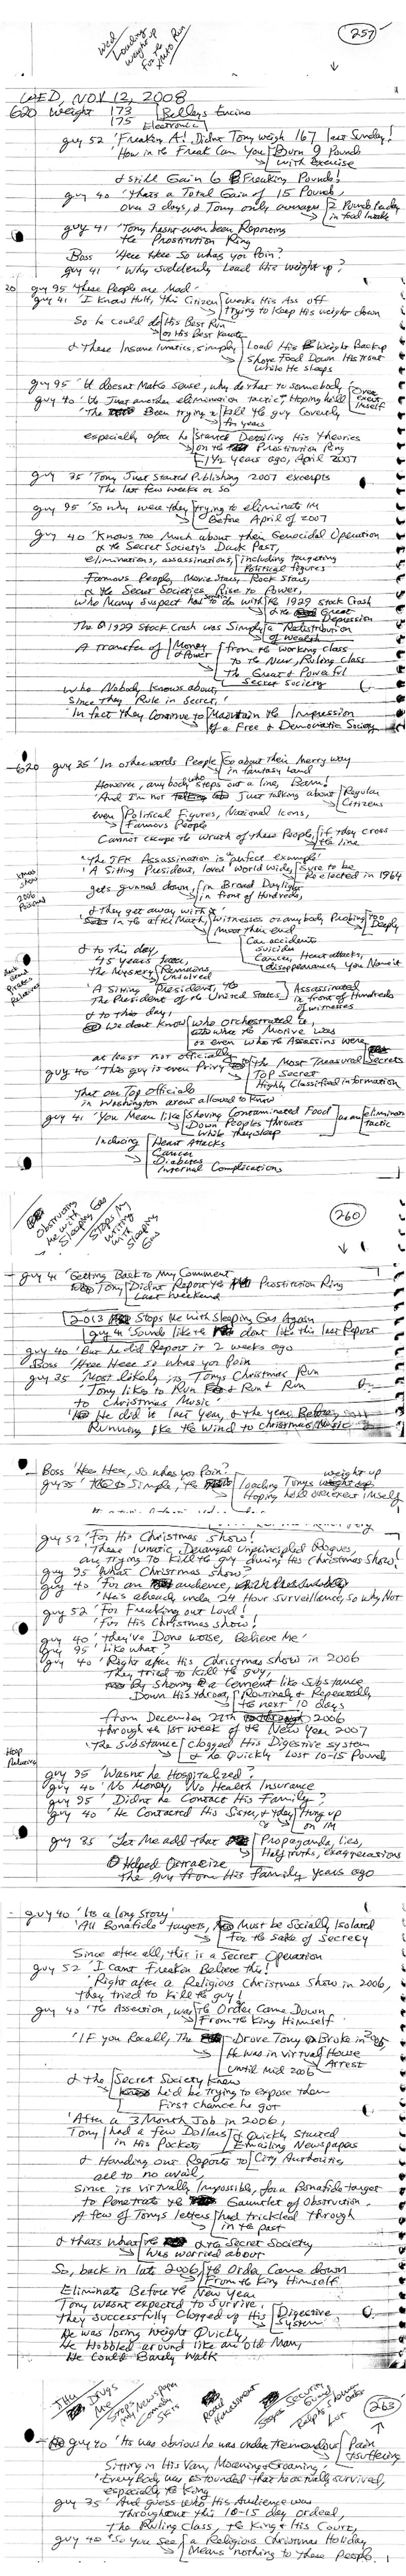 Wed
Loading
weight up
for the
Xmas Run
257
WED, NOV 12, 2008
620 Weight 173 Bellays Encino
175
Electronic
guy 52 'Freaking A! Didnt Tony weigh 167 last Sunday!
'How in the Freak Can You Burn 9 Pounds
with Exercise
& still Gain 6 Freaking Pounds!
guy 40 'thats a Total Gain of 15 Pounds,
over 3 days, & Tony only averages 2 Pounds Per day
in food Intake
guy 41 'Tony hasnt even been Reporting
the Prostitution Ring
Boss 'Here Heee So whas you Poin?
guy 41 'Why suddenly Load His weight up?
20 guy 95 'these People are Mad'
guy 41 'I Know Huh, this Citizen works His Ass off
trying to Keep His weight down
So he could do His Best Run
or His Best Karate
& These Insane lunatics, simply Load His Weight Back up
Shove Food Down His Throat
while He sleeps
guy 95 'It doesnt Make sense, why do that to somebody
guy 40 'Its Just another elimination tactic, Hoping he'll over exert
himself
'The Been trying to Kill the guy Covertly
for years
especially after he started Detailing His theories
on the Prostitution Ring
1 1/2 years ago, April 2007
guy 35 'Tony Just Started Publishing 2007 excerpts
The last few weeks or so'
guy 95 'So why were they trying to eliminate 1M
Before April of 2007
guy 40 'Knows too Much about their Genocidal Operation
& the Secret Society's Dark Past,
eliminations, assassinations, including targeting
Political figures
Famous People, Movie Stars, Rock Stars,
& the Secret Societies Rise to Power,
who Many Suspect had to do with the 1929 Stock Crash
& the Great
Depression
The 1929 Stock Crash was Simply a Redistribution
of wealth
A transfer of Money & Power from the working class
to the New, Ruling Class
The Great & Powerful
Secret Society
Who Nobody Knows about,
Since they Rule in Secret,'
'In fact they Continue to Maintain the Impression
of a Free & Democratic Society
620 guy 35 'In other words People Go about Their Merry way
in fantasy land
However, any body who steps out a line, Bam!
'And I'm not Just talking about Regular
Citizens
even Political Figures, National Icons,
Famous People
Cannot escape the wrath of these People, if they cross
the line
'The JFK Assassination is a perfect example'
'A Sitting President, loved world wide, Sure to be
Re elected in 1964
Xmas
show
2006
Poisoned
gets gunned down, in Broad Daylight
in front of Hundreds,
& they get away with it
'In the after Math, witnesses or anybody Probing too
Deeply
Meet their end
Car accidents
suicides
Cancer, Heart attacks,
disappearances, You Name it
& to this day,
45 years later,
the Mystery Remains
Unsolved
'A Sitting President, the
The President of the United States Assassinated
in front of Hundreds
of witnesses
& to this day,
We dont Know who orchestrated it,
what the Motive was
or even who the Assassins were
at least not officially
guy 40 'This guy is even Privy to the Most Treasured Secrets
Top Secret
Highly Classified information
That our Top Officials
in Washington arent allowed to Know
guy 41 'You Mean like Shoving Contaminated Food
Down Peoples throats
while they sleep
as an elimination
tactic
Inducing Heart Attacks
Cancer
Diabetes
Internal Complications
Obstructing
Me with
Sleeping Gas
Stops My
writing
with
Sleeping
Gas
260
guy 41 'Getting Back to My Comment
Tony Didnt Report the Prostitution Ring
Last weekend
2013 Stops Me with Sleeping Gas Again
guy 41 'Sounds like the dont like this last Report
guy 40 'But he did Report it 2 weeks ago
Boss 'Heee Heee so whas you Poin
guy 35 'Most likely its Tonys Christmas Run
'Tony likes to Run & Run & Run
to Christmas Music'
'He did it last year, & the year Before
Running like the Wind to Christmas Music
Boss 'Hee Hee, so whas you Poin?
guy 35 'Its Simple, the loading Tonys weight up
Hoping he'll over exert himself
guy 52 'For His Christmas show!
'These lunatic Deranged Unprincipled Rogues,
are trying To Kill the guy during His Christmas show!
guy 95 'What Christmas show?
guy 40 'For an audience,
'He's already under 24 Hour surveillance, so why Not
guy 52 'For Freaking out Loud!
'For His Christmas show!
guy 40 'they've Done worse, Believe Me'
guy 95 'Like what?
guy 40 'Right after His Christmas show in 2006
They tried to Kill the guy,
By Shoving a Cement like Substance
Down His throat, Routinely & Repeatedly
the next 10 days
from December 27th 2006
through the 1st week of the New Year 2007
'The Substance Clogged His Digestive System
& he Quickly Lost 10-15 Pounds
guy 95 'Wasnt he Hospitalized?
guy 40 'No Money, No Health Insurance
guy 95 'Didnt he Contact His Family?
guy 40 'He Contacted His Sister, & they Hung up
on 1M
guy 35 'Let Me add that Propaganda, lies,
Half truths, exaggerations
Helped Ostracize
the guy from His family years ago
guy 40 'Its a long Story'
'All Bonafide targets, Must be Socially Isolated
For the Sake of Secrecy
Since after all, this is a Secret Operation
guy 52 'I Cant Freaken Believe this!
'Right after a Religious Christmas Show in 2006,
they tried to Kill the guy!
guy 40 'The Assession, was the Order Came Down
From the King Himself
'IF you Recall, The Drove Tony Broke in 2005,
He was in virtual House
Arrest
until Mid 2006
& the Secret Society Knew
he'd be trying to expose them
First chance he got
'After a 3 Month Job in 2006,
Tony had a few Dollars
in His Pockets & Quickly Started
Emailing Newspapers
& Handing our Reports to City Authorities
all to no avail,
Since its virtually Impossible, for a Bonafide target
to Penetrate the Gauntlet of Obstruction.
A few of Tonys letters had trickled through
in the past
& thats what the & the Secret Society
was worried about
So, back in late 2006, the Order Came down
From the King Himself
Eliminate Before the New Year
Tony wasnt expected to Survive.
They successfully Clogged up His Digestive
System
He was losing weight Quickly,
He Hobbled around like an Old Man,
He Could Barely Walk
Drugs
Me
Stops
my Newspaper
Comedy
Skits
Road
Harassment
Stops Security
Guard
263
guy 40 'It was obvious he was under tremendous Pain
& suffering
Sitting in His Van, Moaning & Groaning'
'Every Body was astounded that he actually survived,
especially the King
guy 35 'And guess who His Audience was
throughout this 10-15 day ordeal,
the Ruling Class, the King & His Court,
guy 40 'So you See, a Religious Christmas Holiday
Means nothing to these People.